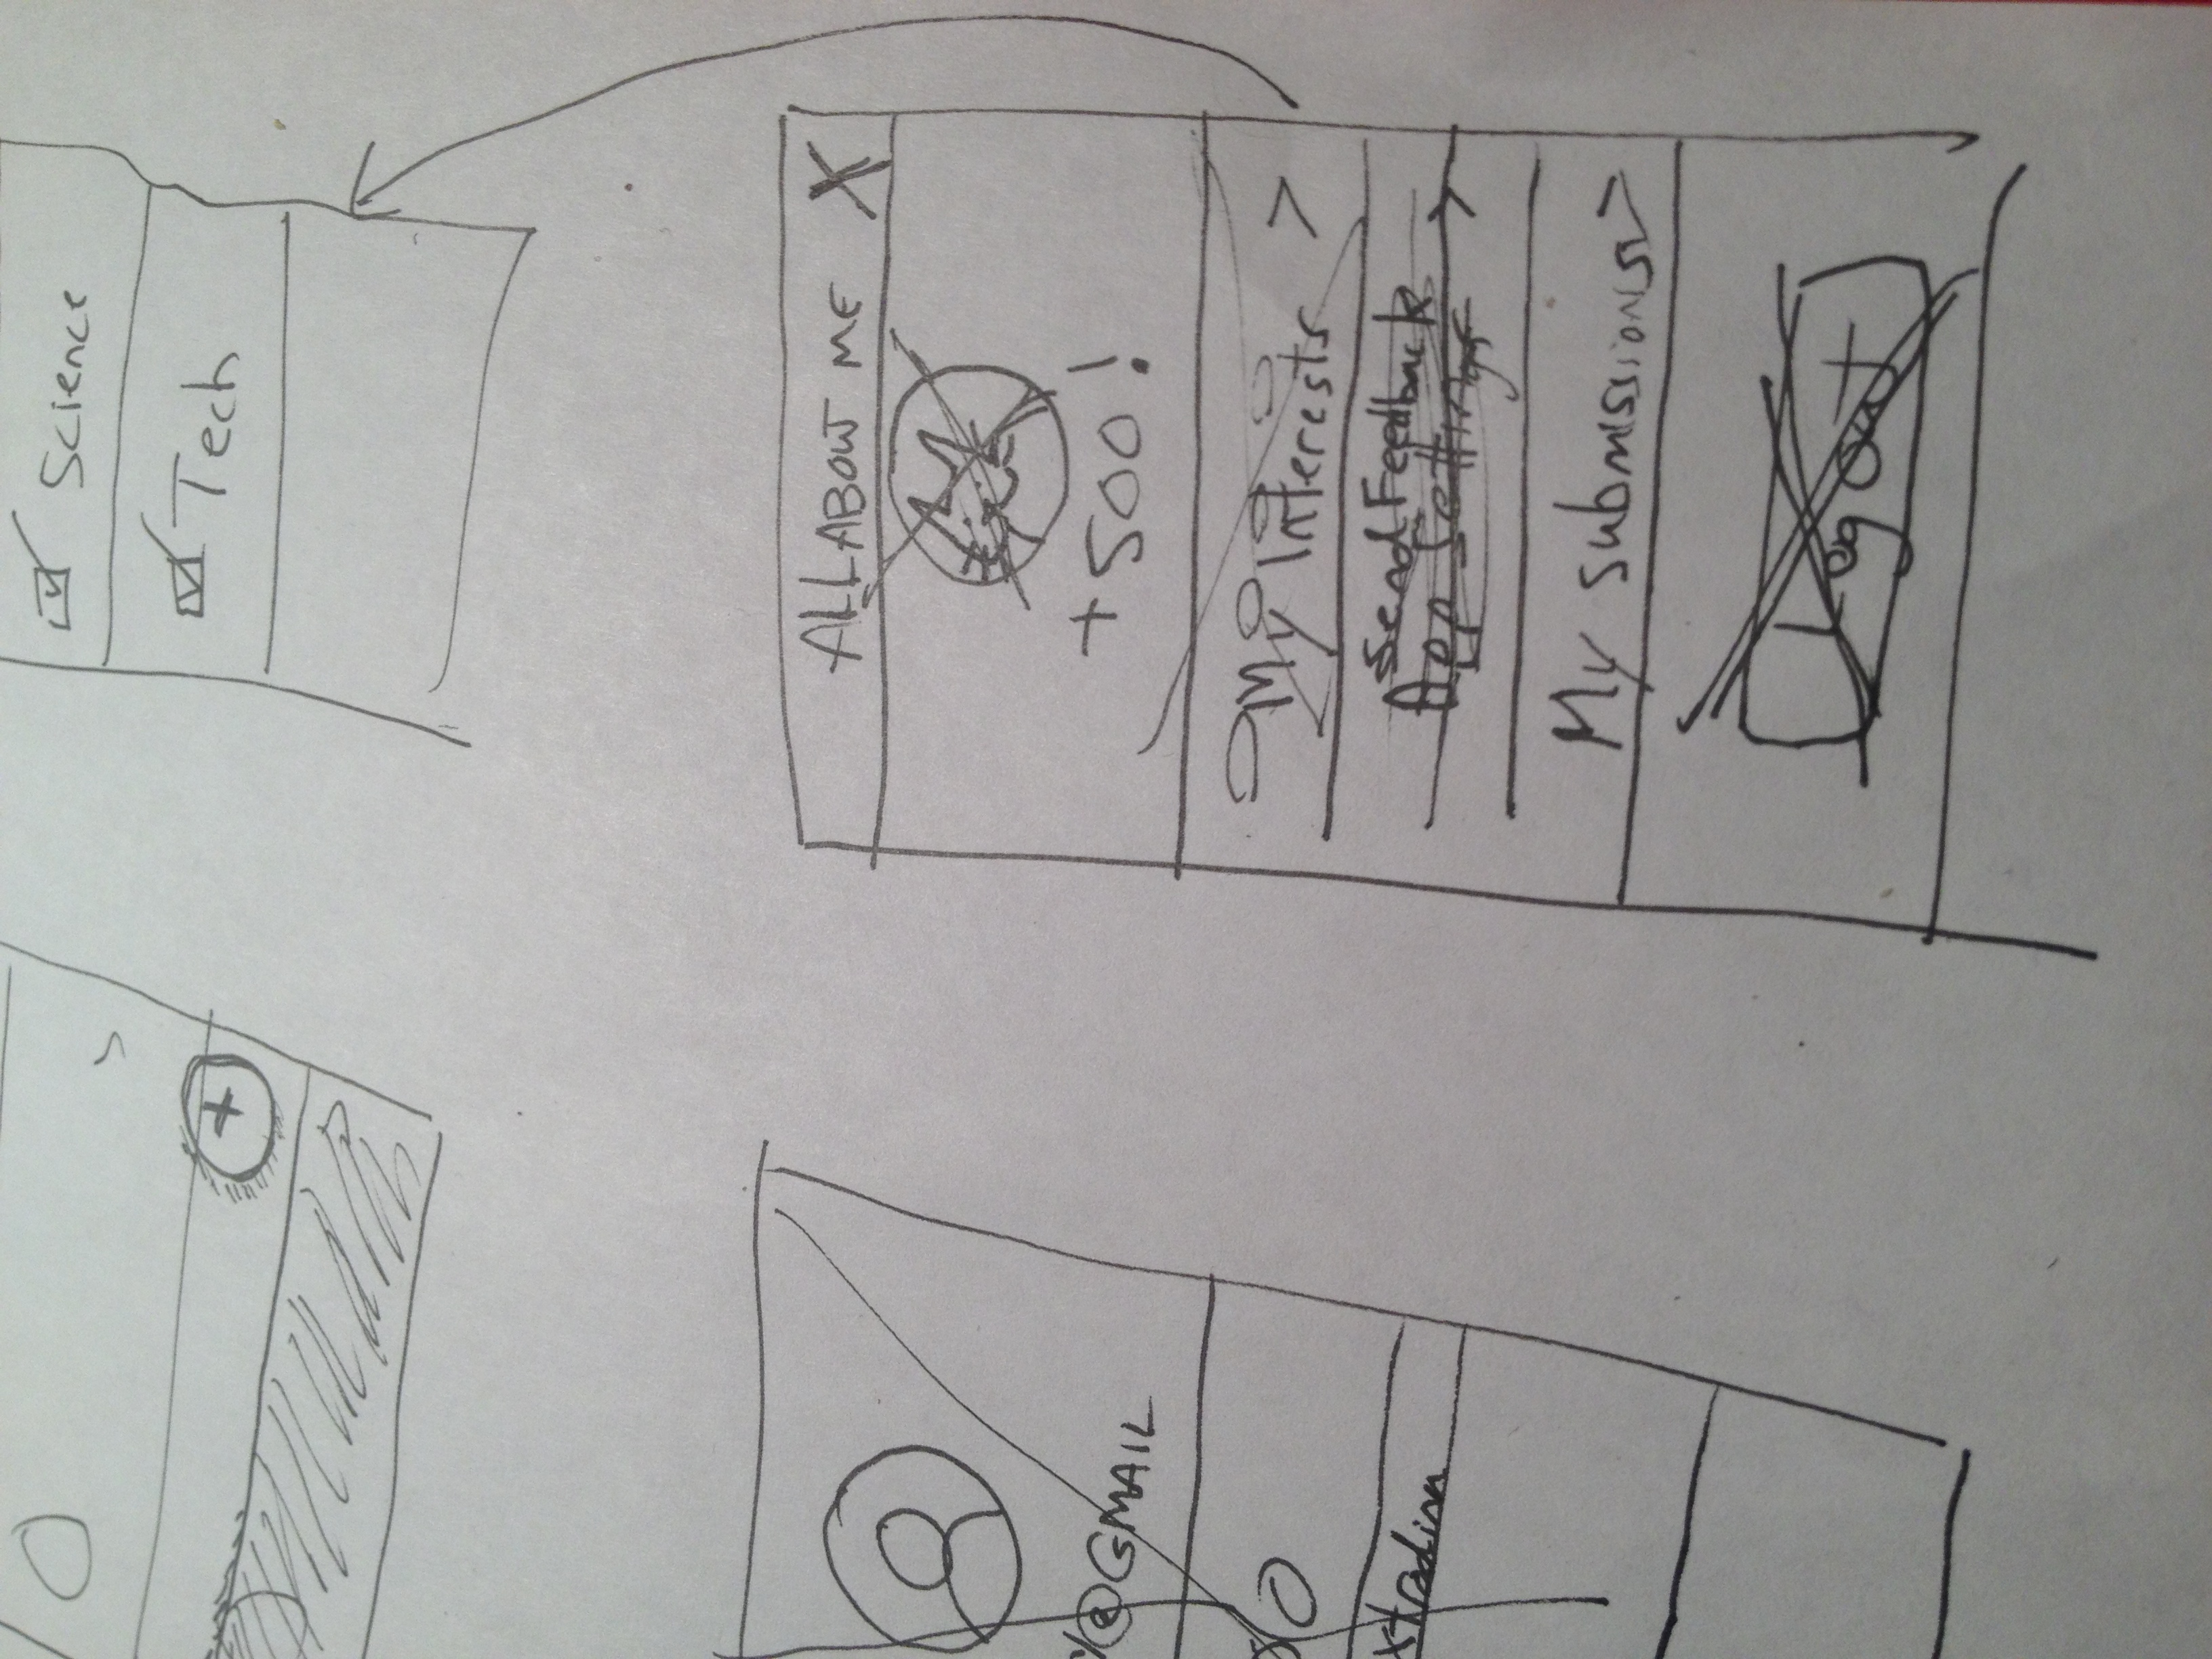 Science
Tech
@GMAIL
ALL ABOUT ME X
+500!
My Interests >
Send Feedback
App Settings >
My submissions >
Log out